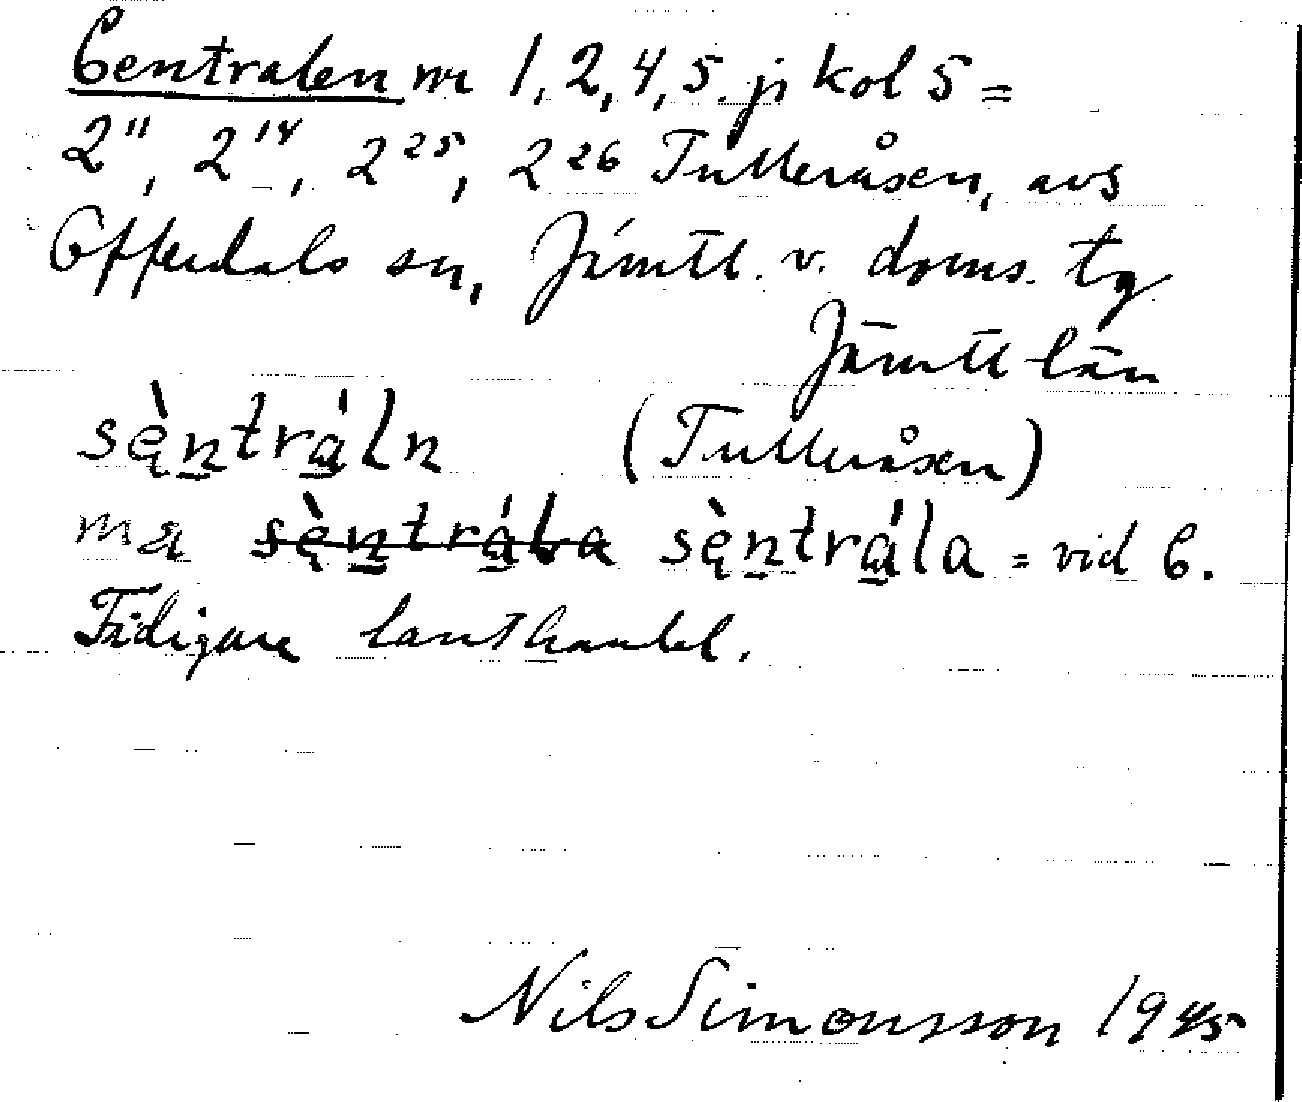 Centralen nr 1, 2, 4, 5. jr kol 5 =
2¹¹, 2¹⁴, 2²⁵, 2²⁶ Tulleråsen, avs
Offerdals sn, Jämtl. v. doms. tg
Jämtl län
sę̀n̲trá̲ln (Tulleråsen)
ma sę̀n̲trá̲la sę̀n̲trá̲la = vid C.
Tidigare lanthandel.
Nils Simonsson 1945